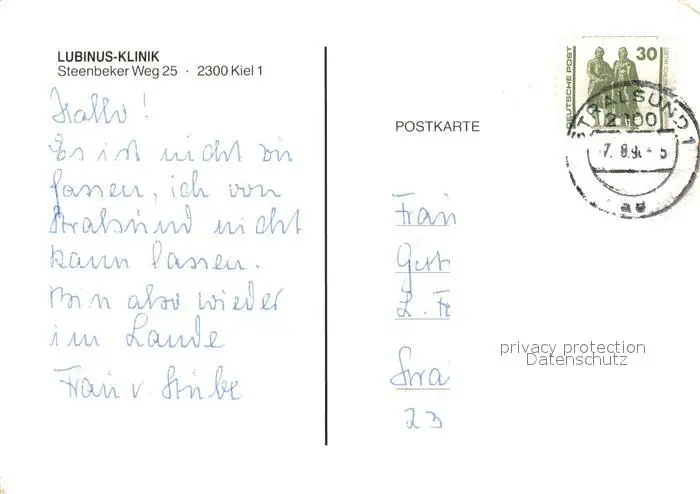 LUBINUS-KLINIK
Steenbeker Weg 25 · 2300 Kiel 1
Hallo!
Es ist nicht zu
fassen, ich von
Stralsund nicht
kann lassen.
Bin also wieder
im Lande
Frau v.
POSTKARTE
Frau
Gut
L. Fr
Stra
23
DEUTSCHE POST
30
STRALSUND 1
2300
7. 8. 9
privacy protection
Datenschutz